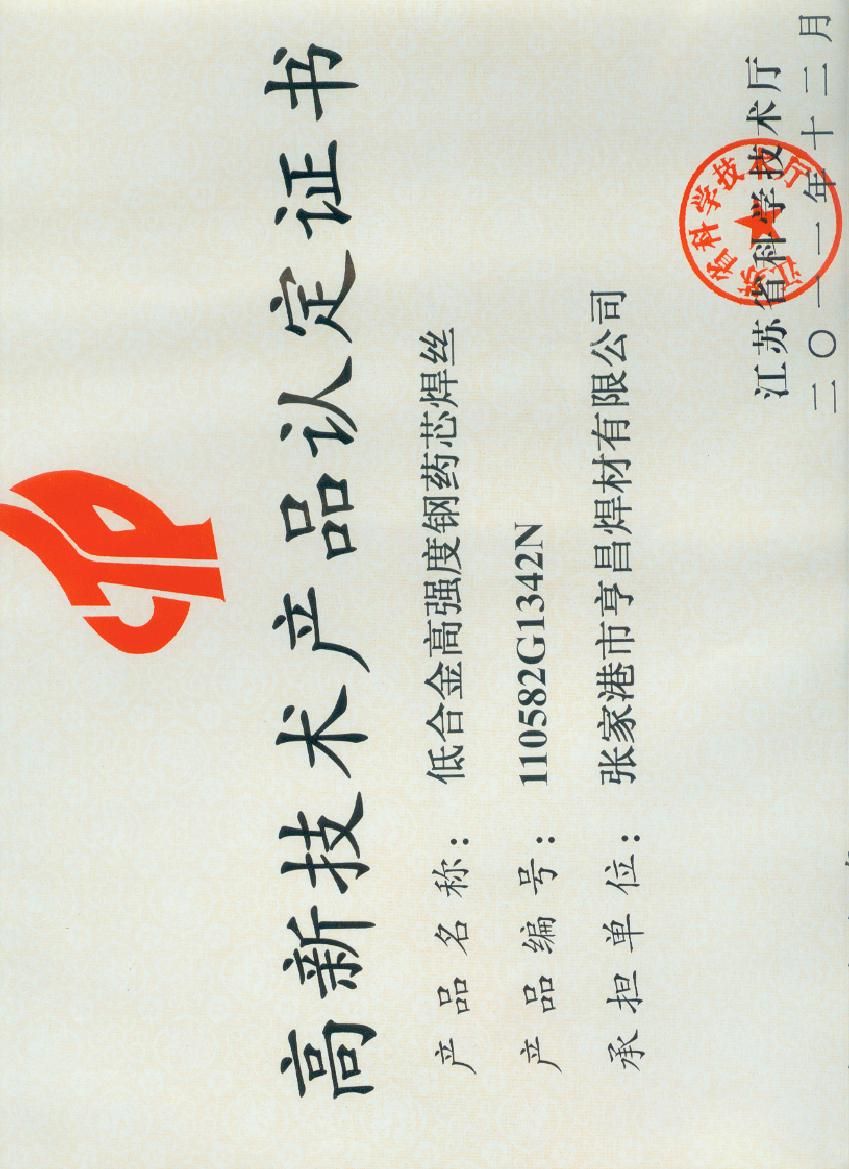 高新技术产品认定证书
产品名称：低合金高强度钢药芯焊丝
产品编号：110582G1342N
承担单位：张家港市亨昌焊材有限公司
江苏省科学技术厅
二〇一一年十二月
江苏省科学技术厅